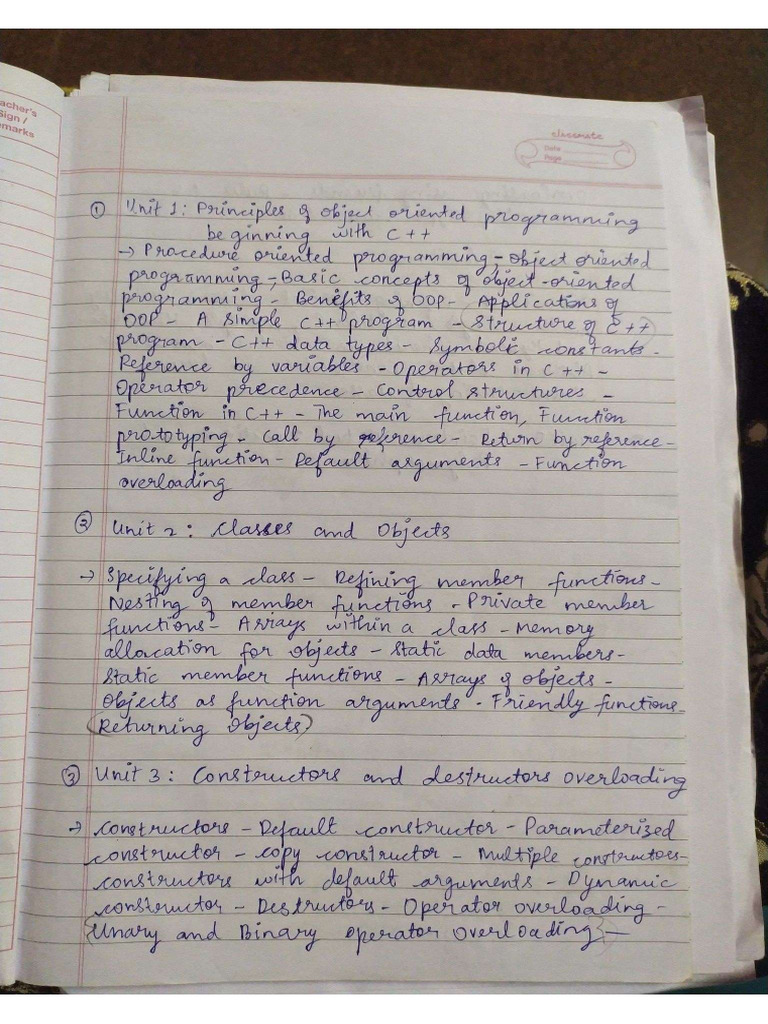 acher's
Sign /
emarks
classmate
Date
Page
① Unit 1: Principles of object oriented programming
beginning with C++
→ Procedure oriented programming - object oriented
programming - Basic concepts of object-oriented
programming - Benefits of OOP - Applications of
OOP - A simple C++ program - Structure of C++
program - C++ data types - Symbolic constants -
Reference by variables - Operators in C++ -
Operator precedence - Control structures -
Function in C++ - The main function, Function
prototyping - Call by reference - Return by reference -
Inline function - Default arguments - Function
overloading
② Unit 2: Classes and Objects
→ Specifying a class - Defining member functions -
Nesting of member functions - Private member
functions - Arrays within a class - Memory
allocation for objects - Static data members -
Static member functions - Arrays of objects -
Objects as function arguments - Friendly functions
(Returning objects)
③ Unit 3: Constructors and destructors overloading
→ Constructors - Default constructor - Parameterized
constructor - copy constructor - Multiple constructors -
constructors with default arguments - Dynamic
constructor - Destructors - Operator overloading -
{Unary and Binary operator overloading} -